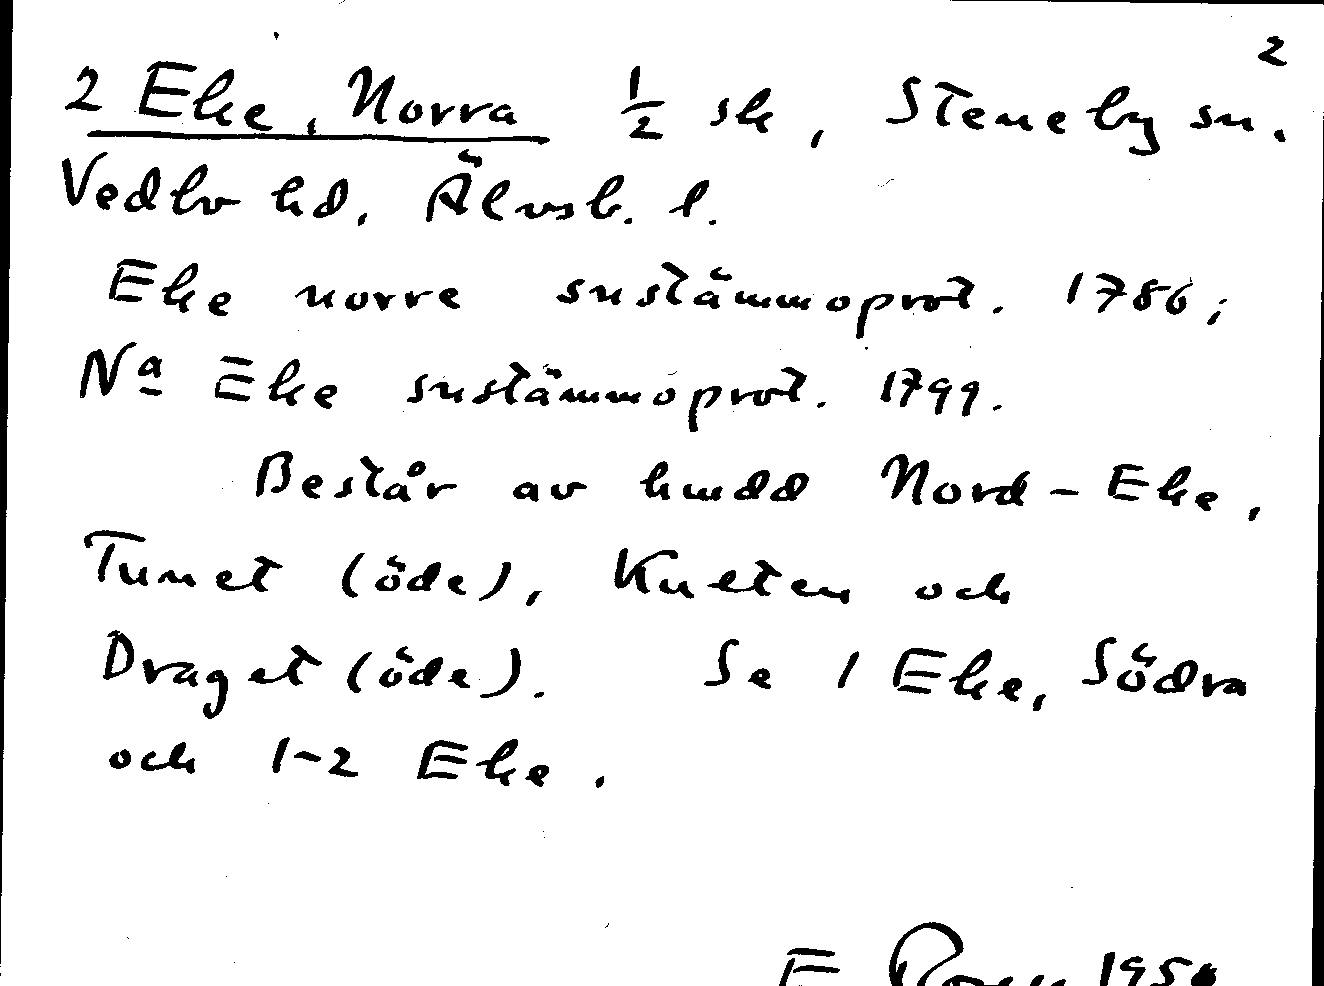 2
2 Eke, Norra ½ sk, Steneby sn.
Vedbo hd, Älvsb. l.
Eke norre snstämmoprot. 1786;
Nª Eke snstämmoprot. 1799.
Består av hmdd Nord-Eke,
Tunet (öde), Kulten och
Draget (öde). Se 1 Eke, Södra
och 1-2 Eke.
E